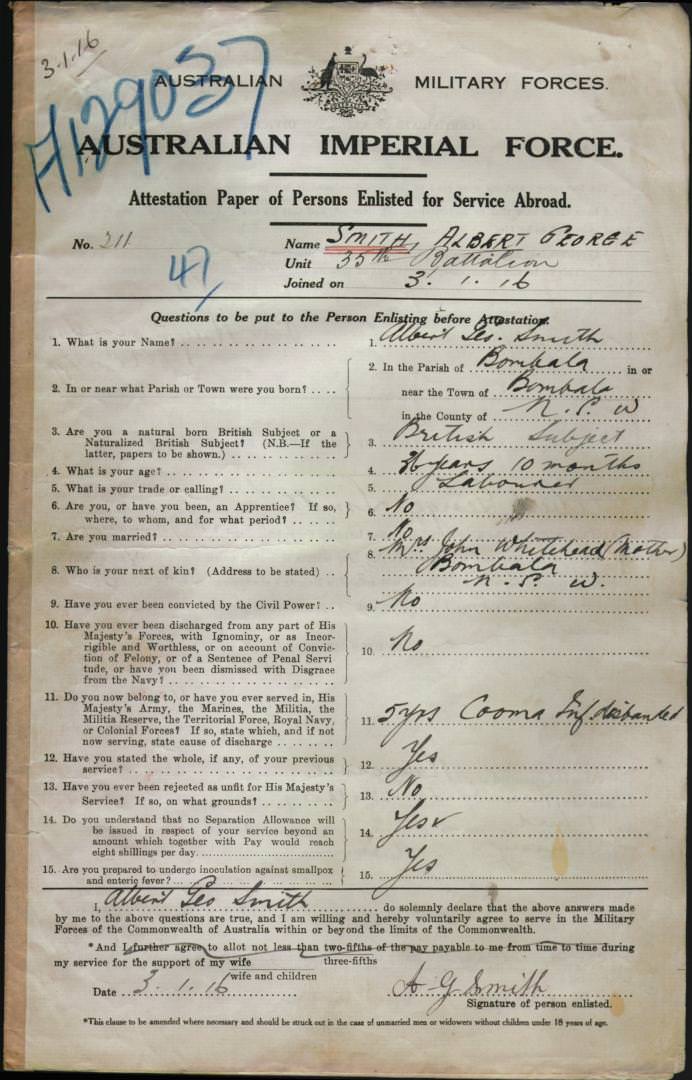 3.1.16
A129037
AUSTRALIAN MILITARY FORCES.
AUSTRALIAN IMPERIAL FORCE.
Attestation Paper of Persons Enlisted for Service Abroad.
No. 211 Name SMITH, ALBERT GEORGE
47 Unit 35th Battalion
Joined on 3.1.16
Questions to be put to the Person Enlisting before Attestation.
1. What is your Name? 1. Albert Geo. Smith
2. In or near what Parish or Town were you born? 2. In the Parish of Bombala in or
near the Town of Bombala
in the County of N.S.W
3. Are you a natural born British Subject or a
Naturalized British Subject? (N.B.—If the
latter, papers to be shown.) 3. British Subject
4. What is your age? 4. 26 years 10 months
5. What is your trade or calling? 5. Labourer
6. Are you, or have you been, an Apprentice? If so,
where, to whom, and for what period? 6. No
7. Are you married? 7. No
8. Who is your next of kin? (Address to be stated) 8. Mrs John Whitehead (Mother)
Bombala
N.S.W.
9. Have you ever been convicted by the Civil Power? 9. No
10. Have you ever been discharged from any part of His
Majesty's Forces, with Ignominy, or as Incor-
rigible and Worthless, or on account of Convic-
tion of Felony, or of a Sentence of Penal Servi
tude, or have you been dismissed with Disgrace
from the Navy? 10. No
11. Do you now belong to, or have you ever served in, His
Majesty's Army, the Marines, the Militia, the
Militia Reserve, the Territorial Force, Royal Navy,
or Colonial Forces? If so, state which, and if not
now serving, state cause of discharge 11. 5 yrs Cooma Inf. disbanded
12. Have you stated the whole, if any, of your previous
service? 12. Yes
13. Have you ever been rejected as unfit for His Majesty's
Service? If so, on what grounds? 13. No
14. Do you understand that no Separation Allowance will
be issued in respect of your service beyond an
amount which together with Pay would reach
eight shillings per day. 14. Yes
15. Are you prepared to undergo inoculation against smallpox
and enteric fever? 15. Yes
I, Albert Geo Smith do solemnly declare that the above answers made
by me to the above questions are true, and I am willing and hereby voluntarily agree to serve in the Military
Forces of the Commonwealth of Australia within or beyond the limits of the Commonwealth.
*And I further agree to allot not less than two-fifths of the pay payable to me from time to time during
three-fifths
my service for the support of my wife
wife and children
Date 3.1.16 A G Smith
Signature of person enlisted.
*This clause to be amended where necessary and should be struck out in the case of unmarried men or widowers without children under 18 years of age.